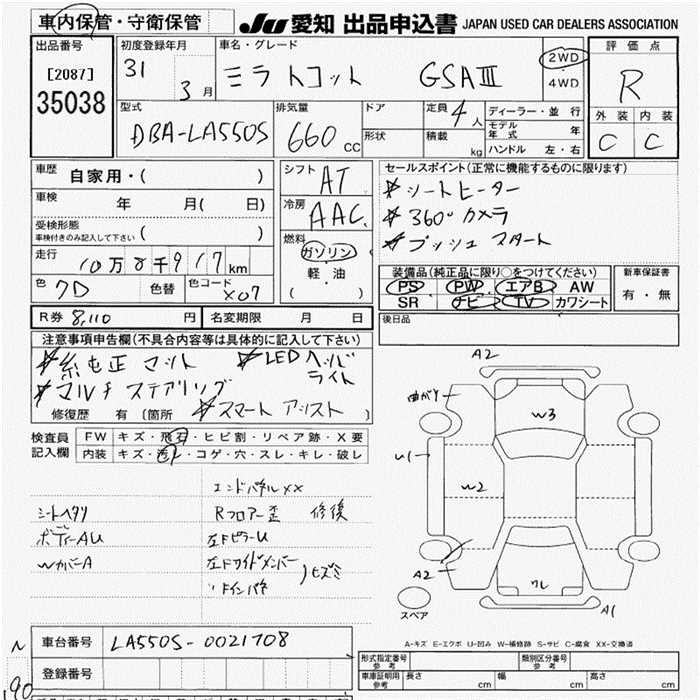 車内保管・守衛保管
JU 愛知 出品申込書 JAPAN USED CAR DEALERS ASSOCIATION
出品番号
[2087]
35038
初度登録年月
31
3 月
車名・グレード
ミラトコット GSAⅢ
2WD
・
4WD
評価点
R
外装 内装
C C
型式
DBA-LA550S
排気量
660 CC
ドア
形状
定員 4 人
積載 kg
ディーラー・並行
モデル年式 年
ハンドル 左・右
車歴
自家用・( )
車検
年 月( 日)
受検形態
車検付きのみ記入して下さい ( )
走行
10万8千917 km
色 色替 色コード
クロ X07
シフト
AT
冷房
AAC
燃料
ガソリン
・
軽・油
( )
セールスポイント(正常に機能するものに限ります)
※シートヒーター
※360°カメラ
※プッシュスタート
装備品(純正品に限り○をつけてください)
PS PW エアB AW
SR ナビ TV カワシート
新車保証書
有・無
R券 8,110 円
名変期限 月 日
後日品
注意事項申告欄(不具合内容等は具体的に記入して下さい)
※純正マット ※LEDヘッド
ライト
※マルチステアリング
修復歴 有 [箇所 ※スマートアシスト ]
検査員
記入欄
FW キズ・飛石・ヒビ割・リペア跡・X要
内装 キズ・汚レ・コゲ・穴・スレ・キレ・破レ
エンドパネルXX
シートヘタリ
Rフロアー歪 修復
ボデーAU
左FピラーU
WカバーA
左Fサイドメンバー
〃Fインパネ
)キズミ
A2
曲がり
W3
U1
W2
A2
クレ
A1
スペア
A-キズ E-エクボ U-凹み W-補修跡 S-サビ C-腐食 XX-交換済
N
車台番号 LA550S-0021708
190
登録番号
形式指定番号
参考
類別区分番号
参考
車庫証明用
参考
長さ cm
幅 cm
高さ cm